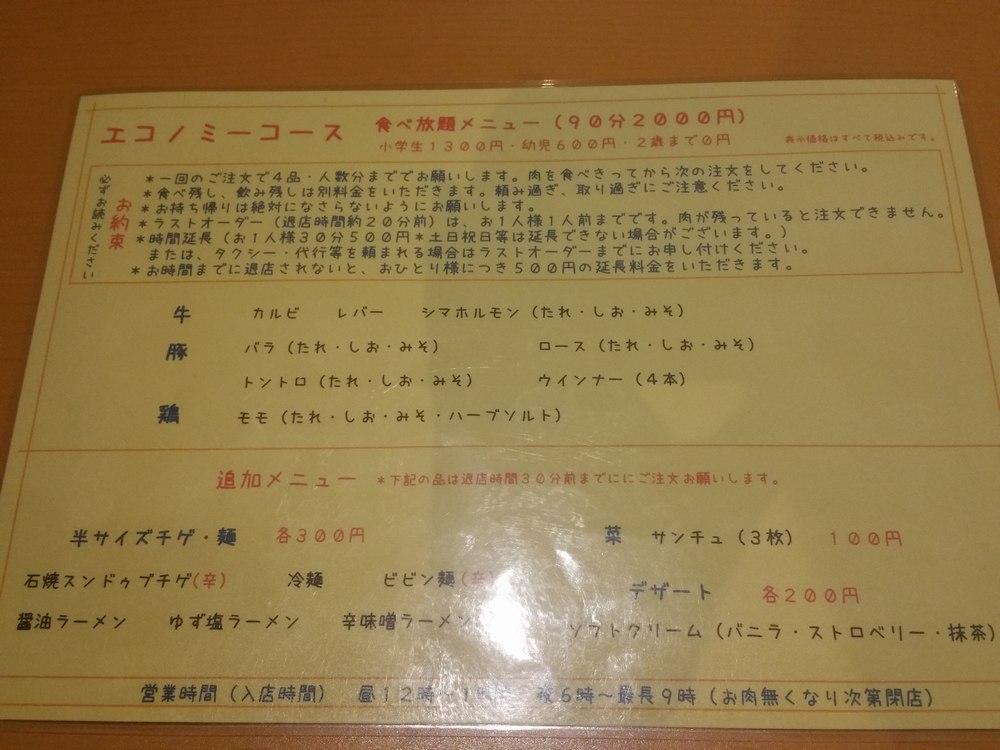 エコノミーコース 食べ放題メニュー（90分2000円）
小学生1300円・幼児600円・2歳まで0円
表示価格はすべて税込みです。
必ずお読みください
お約束
＊一回のご注文で4品・人数分まででお願いします。肉を食べきってから次の注文をしてください。
＊食べ残し、飲み残しは別料金をいただきます。頼み過ぎ、取り過ぎにご注意ください。
＊お持ち帰りは絶対になさらないようにお願いします。
＊ラストオーダー（退店時間約20分前）は、お1人様1人前までです。肉が残っていると注文できません。
＊時間延長（お1人様30分500円＊土日祝日等は延長できない場合がございます。）
または、タクシー・代行等を頼まれる場合はラストオーダーまでにお申し付けください。
＊お時間までに退店されないと、おひとり様につき500円の延長料金をいただきます。
牛 カルビ レバー シマホルモン（たれ・しお・みそ）
豚 バラ（たれ・しお・みそ） ロース（たれ・しお・みそ）
トントロ（たれ・しお・みそ） ウインナー（4本）
鶏 モモ（たれ・しお・みそ・ハーブソルト）
追加メニュー ＊下記の品は退店時間30分前までににご注文お願いします。
半サイズチゲ・麺 各300円
石焼スンドゥブチゲ(辛) 冷麺 ビビン麺(辛)
醤油ラーメン ゆず塩ラーメン 辛味噌ラーメン
菜 サンチュ（3枚） 100円
デザート 各200円
ソフトクリーム（バニラ・ストロベリー・抹茶）
営業時間（入店時間） 昼12時～1時 夜6時～最長9時（お肉無くなり次第閉店）